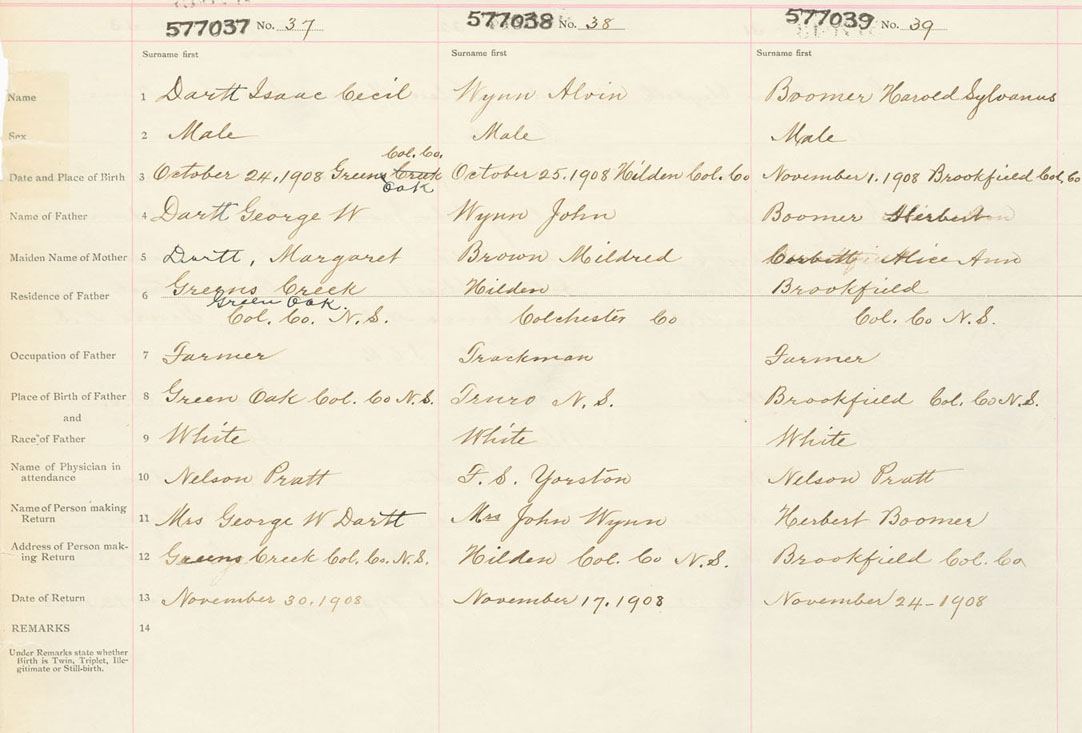 577037 No. 37 577038 No. 38 577039 No. 39
Surname first Surname first Surname first
Name 1 Dartt Isaac Cecil Wynn Alvin Boomer Harold Sylvanus
Sex 2 Male Male Male
Col. Co.
Date and Place of Birth 3 October 24, 1908 Greens Creek October 25. 1908 Hilden Col. Co November 1. 1908 Brookfield Col. Co
Oak
Name of Father 4 Dartt George W Wynn John Boomer Herbert
Maiden Name of Mother 5 Dartt, Margaret Brown Mildred Corbitt Alice Ann
Residence of Father 6 Greens Creek Hilden Brookfield
Green Oak.
Col. Co. N.S. Colchester Co Col. Co N.S.
Occupation of Father 7 Farmer Trackman Farmer
Place of Birth of Father 8 Green Oak Col. Co N.S. Truro N.S. Brookfield Col. Co N.S.
and
Race of Father 9 White White White
Name of Physician in
attendance 10 Nelson Pratt F. S. Yorston Nelson Pratt
Name of Person making
Return 11 Mrs George W Dartt Mrs John Wynn Herbert Boomer
Address of Person mak-
ing Return 12 Greens Creek Col. Co. N.S. Hilden Col. Co N.S. Brookfield Col. Co
Date of Return 13 November 30. 1908 November 17. 1908 November 24-1908
REMARKS 14
Under Remarks state whether
Birth is Twin, Triplet, Ille-
gitimate or Still-birth.